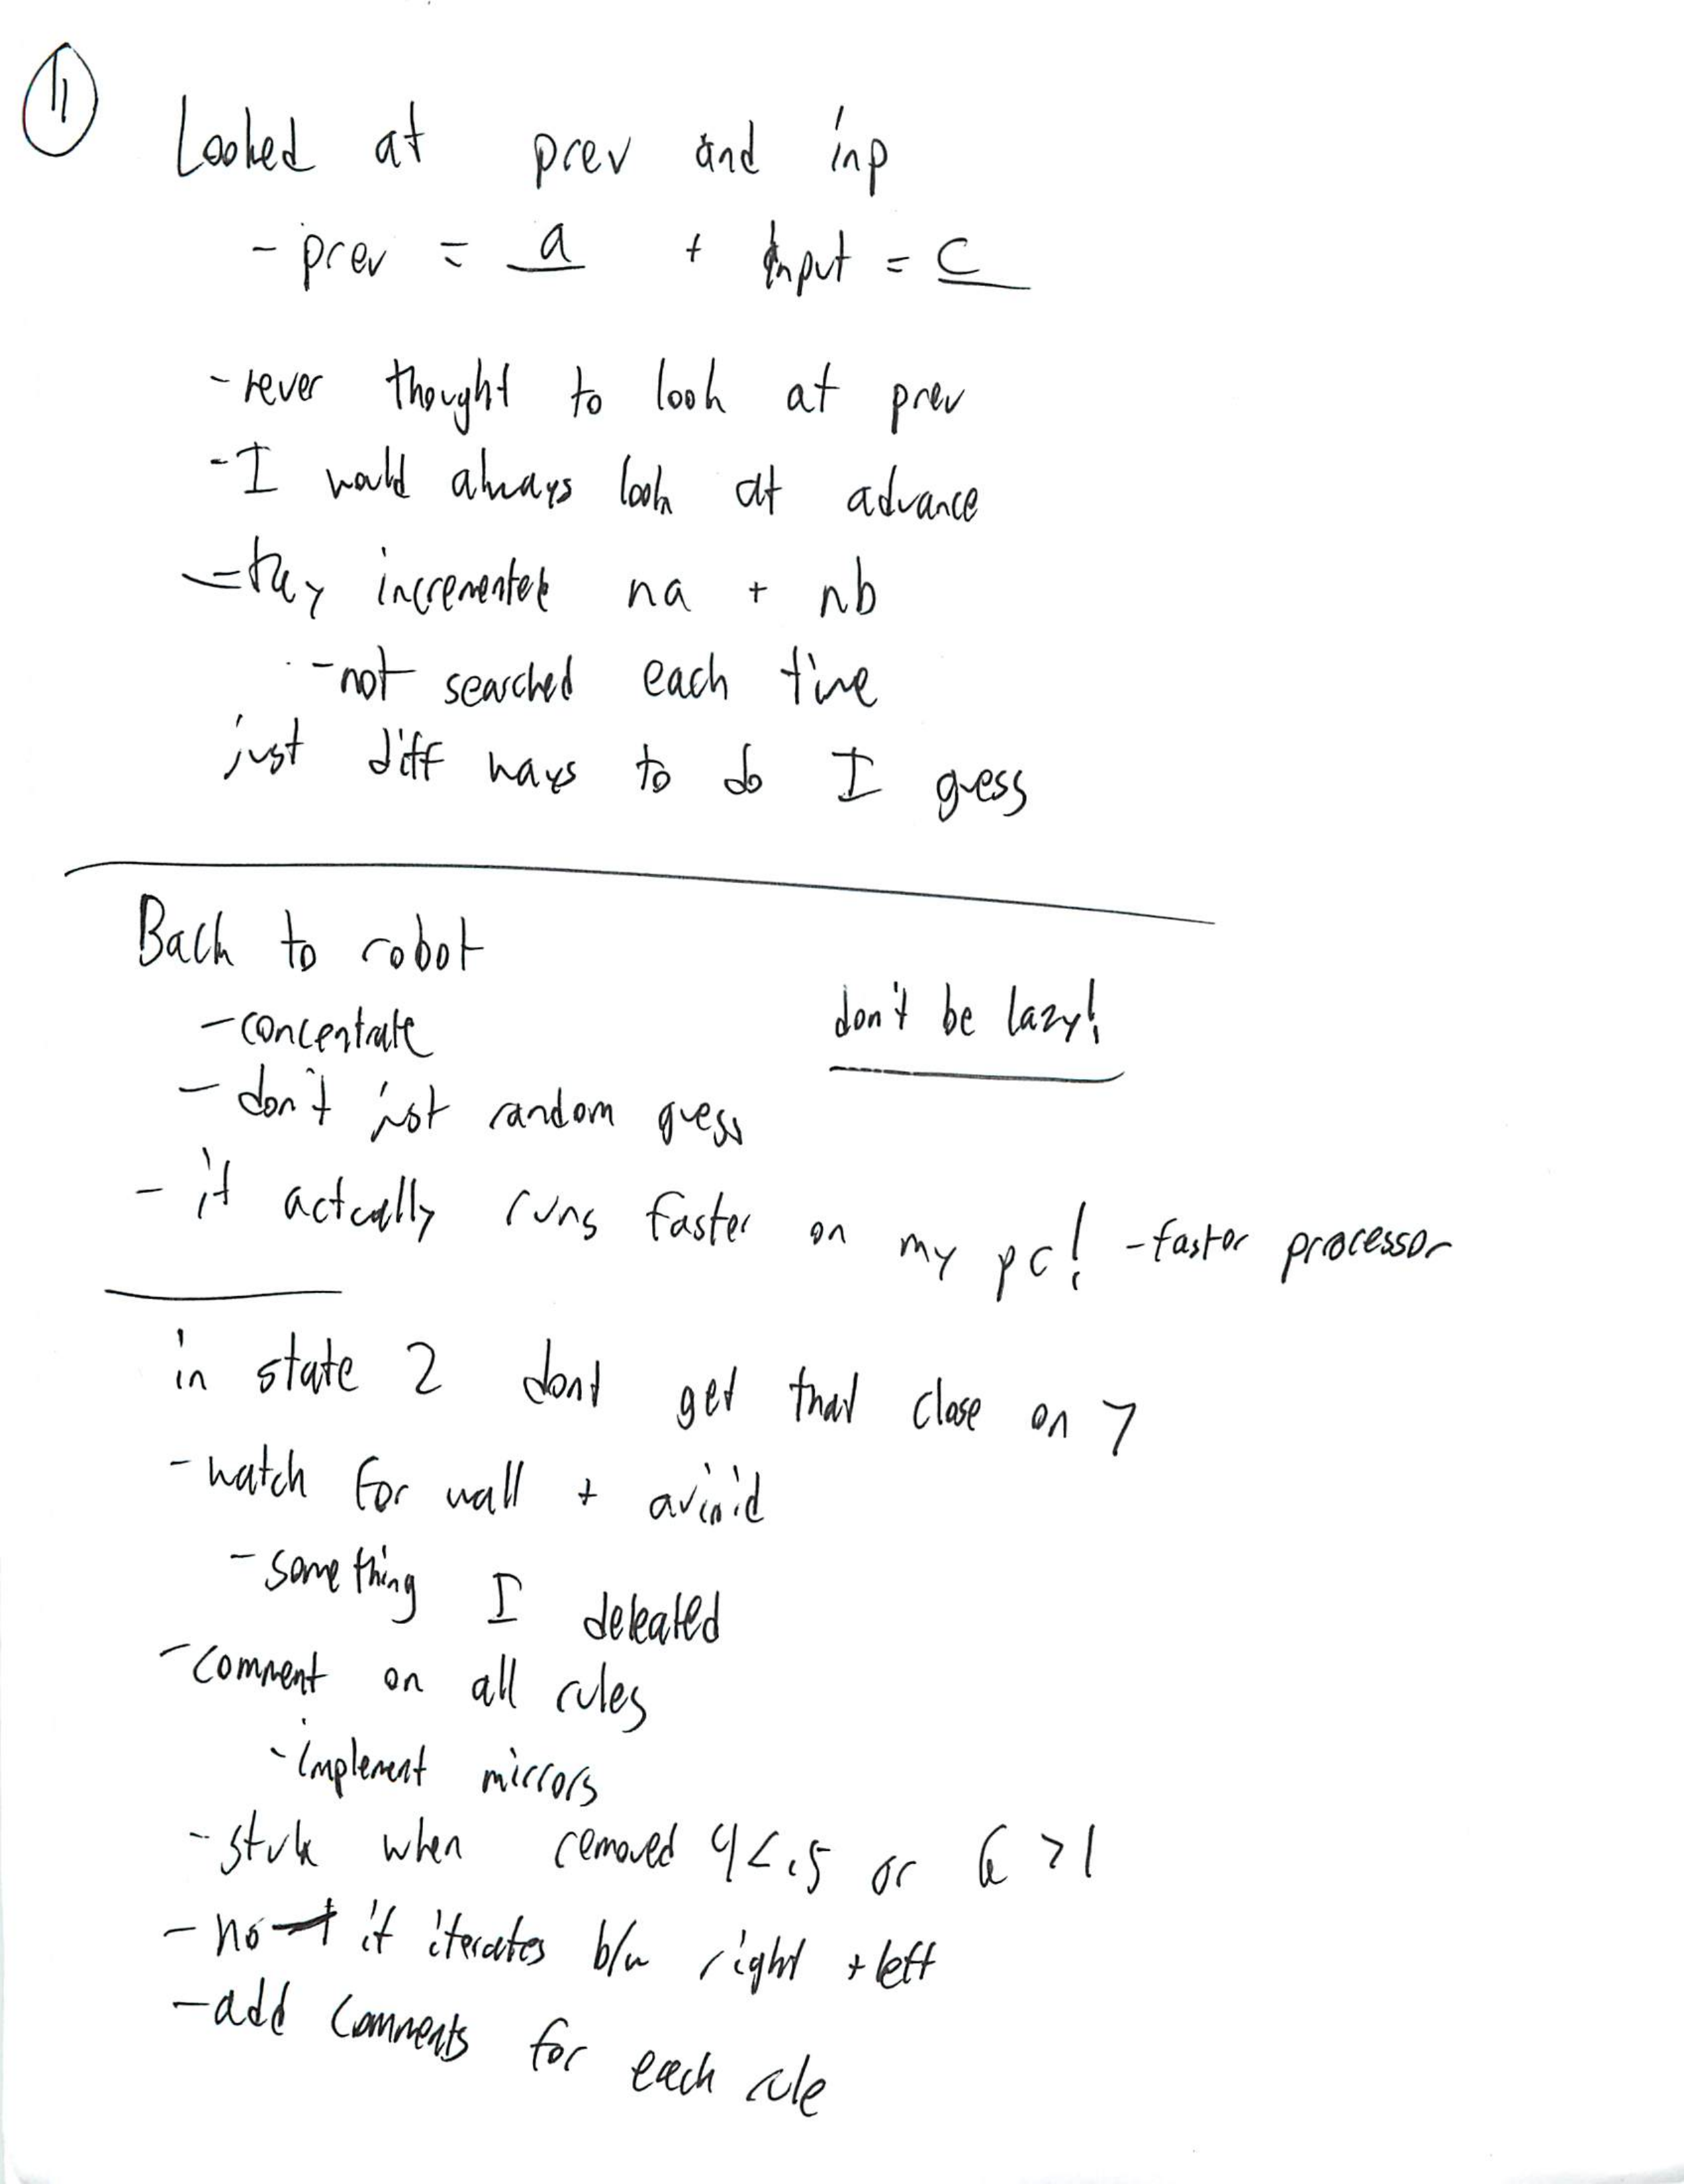 11
Looked at prev and inp
- prev = a + input = c
- never thought to look at prev
- I would always look at advance
- they incremented na + nb
- not searched each time
just diff ways to do I guess
Back to robot
- concentrate
don't be lazy!
- don't just random guess
- it actually runs faster on my pc! - faster processor
in state 2 dont get that close on 7
- watch for wall + avioid
- something I deleated
- comment on all rules
- implement mirrors
- stuk when removed 4<.5 or 6 >1
- no it iterates b/w right + left
- add comments for each rule